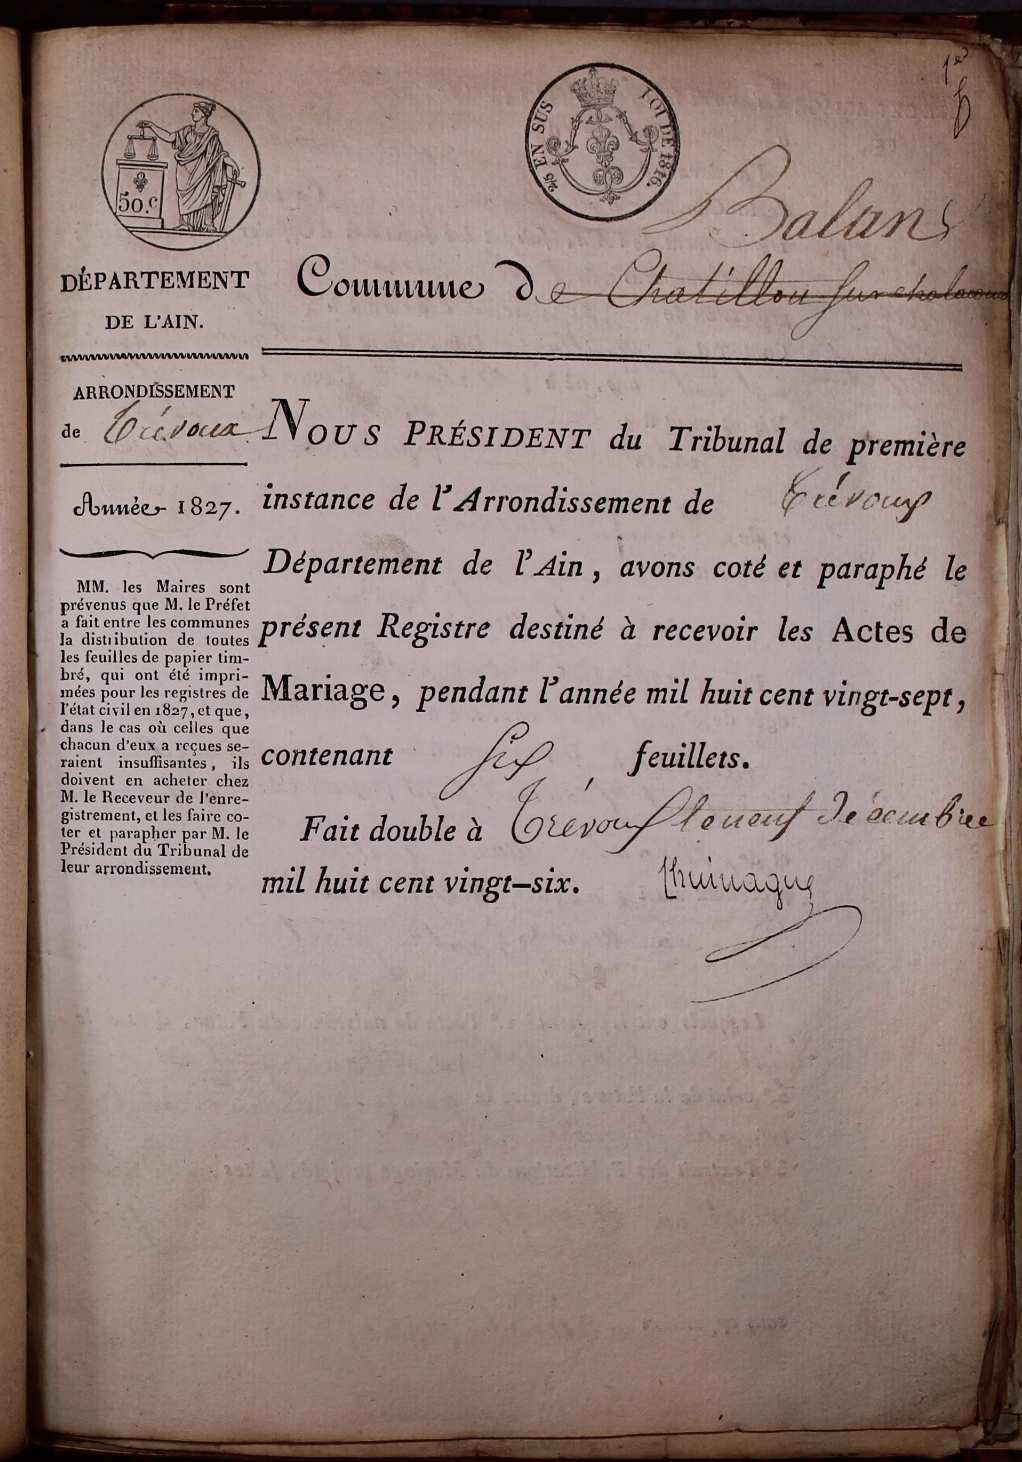 1er
50.c
2/5 EN SUS LOI DE 1816.
Balan
DÉPARTEMENT
DE L'AIN.
Commune de Chatillon sur chalaronne
ARRONDISSEMENT
de Trévoux
Année 1827.
MM. les Maires sont
prévenus que M. le Préfet
a fait entre les communes
la distribution de toutes
les feuilles de papier tim-
bré, qui ont été impri-
mées pour les registres de
l'état civil en 1827, et que,
dans le cas où celles que
chacun d'eux a reçues se-
raient insuffisantes, ils
doivent en acheter chez
M. le Receveur de l'enre-
gistrement, et les faire co-
ter et parapher par M. le
Président du Tribunal de
leur arrondissement.
NOUS PRÉSIDENT du Tribunal de première
instance de l'Arrondissement de Trévoux
Département de l'Ain, avons coté et paraphé le
présent Registre destiné à recevoir les Actes de
Mariage, pendant l'année mil huit cent vingt-sept,
contenant Six feuillets.
Fait double à Trévoux le neuf Décembre
mil huit cent vingt-six.